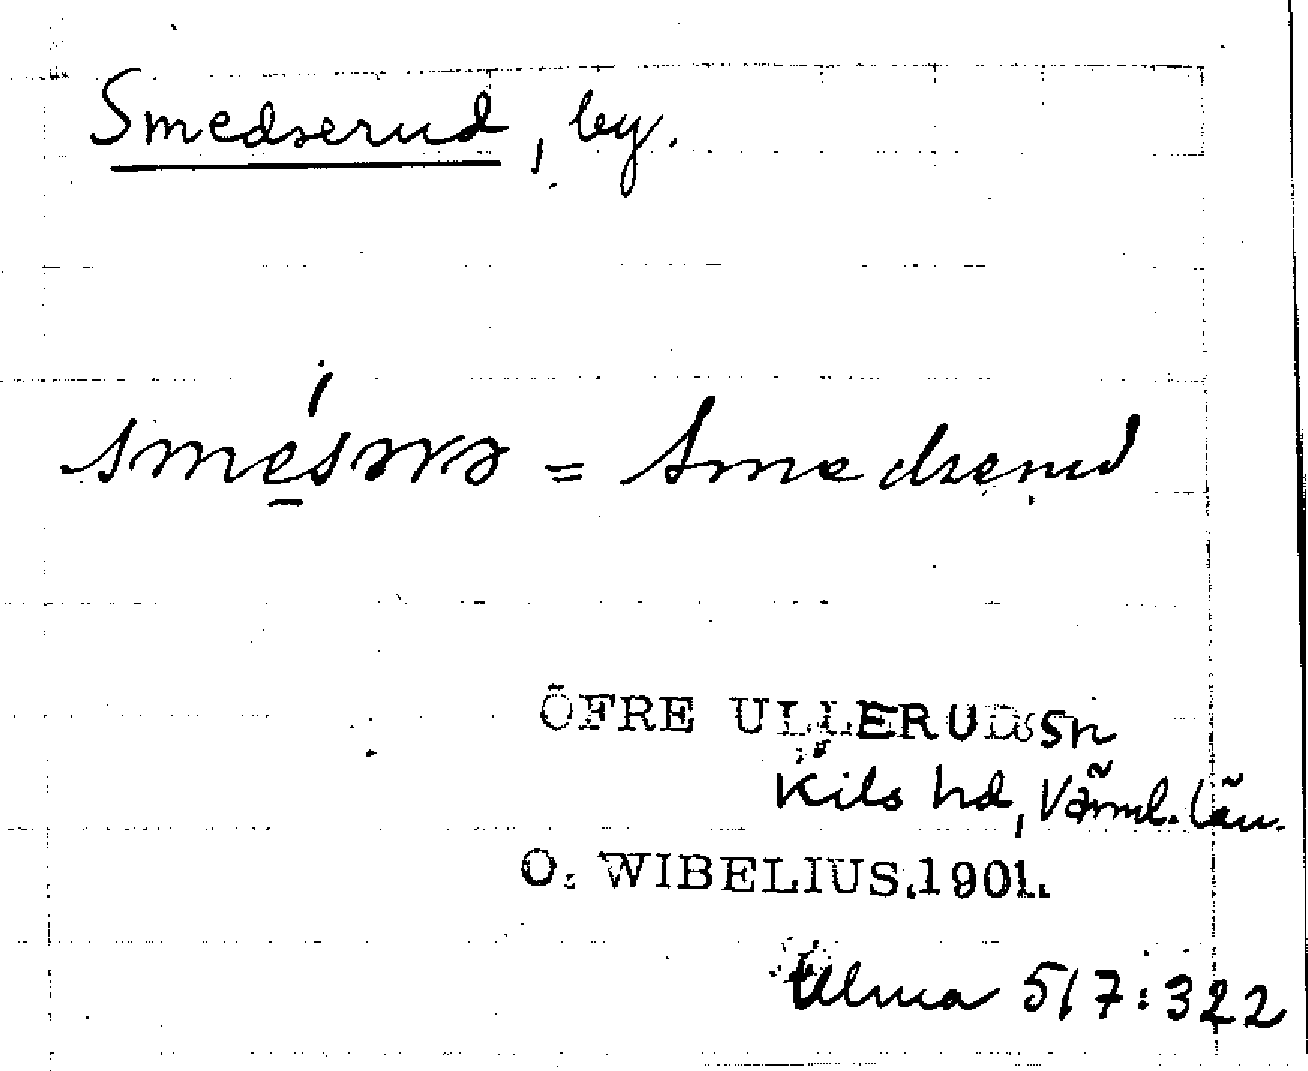 Smedserud, by.
smesərə = Smedserud
ÖFRE ULLERUDS sn
Kils hd, Värml. län.
O. WIBELIUS. 1901.
Ulma 517:322